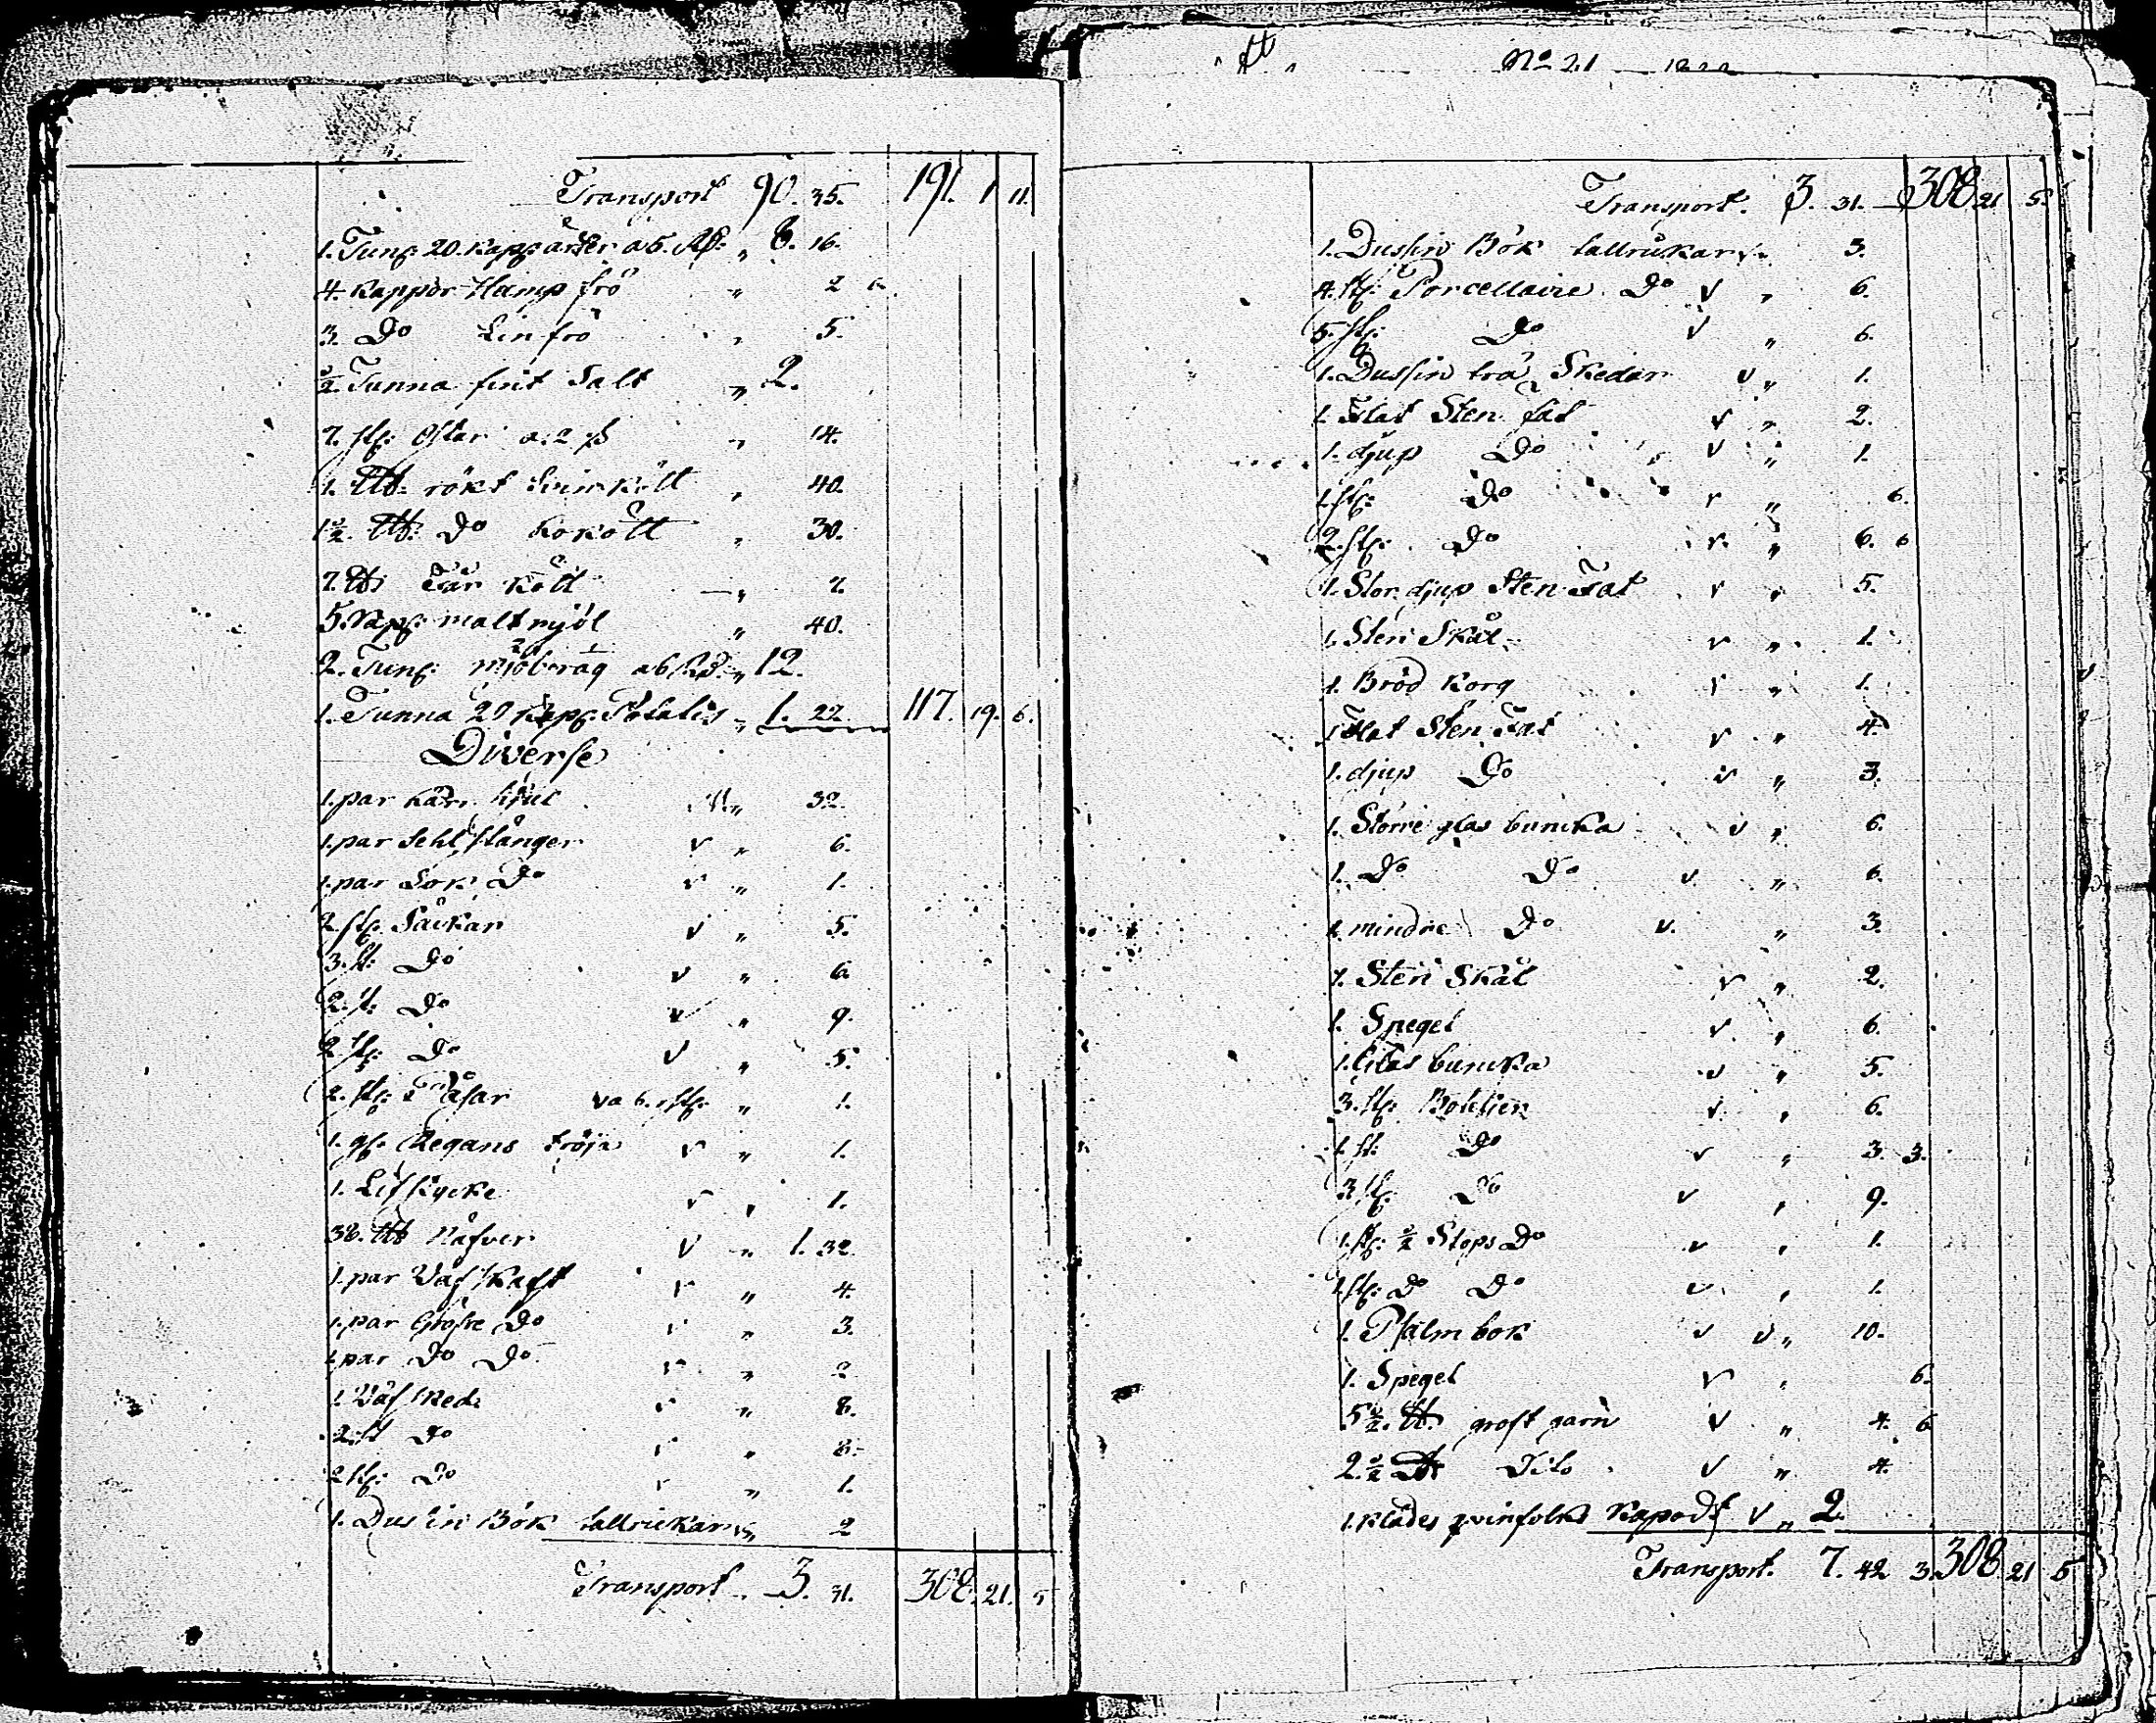 Transport 90. 35. 191. 1 11.
1. Tunf: 20. kapp: ärter a 5. Rd: „ 6. 16.
4. Kappor Hamp frö „ 2 6.
3. Do Lin frö „ 5.
½. Tunna fint Salt „ 2.
7. stf: Ostar a 2 sh „ 14.
1. Ltt: rökt Svin kött „ 40.
1½. Ltt: Do kokött „ 30.
7. tt: Får kött „ 7.
5. Kapp: maltmjöl „ 40.
2. Tunf: a 6 Rd: „ 12.
1. Tunna 20 Kapp: Potatis „ 1. 22. 117. 19. 6.
Diverse
1. par kärr hjul „ 32.
1. par stänger v „ 6.
1. par Do v „ 1.
2. stf: Säckar v „ 5.
3. st: Do v „ 6.
2. st: Do v „ 9.
2. stf: Do v „ 5.
2. stf: Påsar v a 6. rstf: „ 1.
1. gf: Regans tröja v „ 1.
1. Lifstycke v „ 1.
38. Ltt Näfver v „ 1. 32.
1. par Väf skaft v „ 4.
1. par Gröfre Do v „ 3.
1. par Do Do v „ 2
1. Väf sked v „ 8.
2. st Do v „ 8.
2 stf: Do v „ 1.
1. Dussin Bök tallrickar v „ 2
Transport. 3. 31. 308. 21. 5
No 21
Transport. 3. 31. 308 21 5.
1. Dussin Bök tallrickar v „ 3.
4. stf: Porcellaine Do v „ 6.
5. stf: Do v „ 6.
1. Dussin trä Skedar v „ 1.
1. Flat Sten fat v „ 2.
1. djup Do v „ 1.
1. stf: Do v „ 6.
2. stf: Do v „ 6. 6
1. Stor djup Sten Fat v „ 5.
1. Sten Skål v „ 1.
1. Bröd Korg v „ 1.
1 Flat Sten Fat v „ 4.
1. djup Do v „ 3.
1. Större glas buncka v „ 6.
1. Do Do v. „ 6.
1. mindre Do v. „ 3.
1. Sten Skål v „ 2.
1. Spegel v „ 6.
1. Glas buncka v „ 5.
3. stf: Boteljer v „ 6.
1. st: Do v „ 3. 3.
3 stf: Do v „ 9.
1. stf: ½ Stops Do v „ 1.
1. stf: Do Do v „ 1.
1. Psalm bok v v „ 10.
1. Spegel v „ 6.
5½. tt. groft garn v „ 4. 6
2.½ tt Dito v „ 4.
1. klädes qvinfolks Kapod v „ 2.
Transport. 7. 42 3. 308 21 5